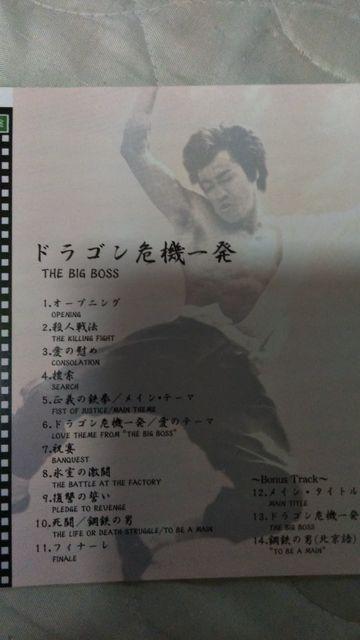 ドラゴン危機一発
THE BIG BOSS
1.オープニング
OPENING
2.殺人戦法
THE KILLING FIGHT
3.愛の慰め
CONSOLATION
4.捜索
SEARCH
5.正義の鉄拳/メイン・テーマ
FIST OF JUSTICE/MAIN THEME
6.ドラゴン危機一発/愛のテーマ
LOVE THEME FROM "THE BIG BOSS"
7.祝宴
BANQUEST
8.氷室の激闘
THE BATTLE AT THE FACTORY
9.復讐の誓い
PLEDGE TO REVENGE
10.死闘/鋼鉄の男
THE LIFE OR DEATH STRUGGLE/TO BE A MAIN
11.フィナーレ
FINALE
〜Bonus Track〜
12.メイン・タイトル
MAIN TITLE
13.ドラゴン危機一発
THE BIG BOSS
14.鋼鉄の男(北京語)
"TO BE A MAIN"